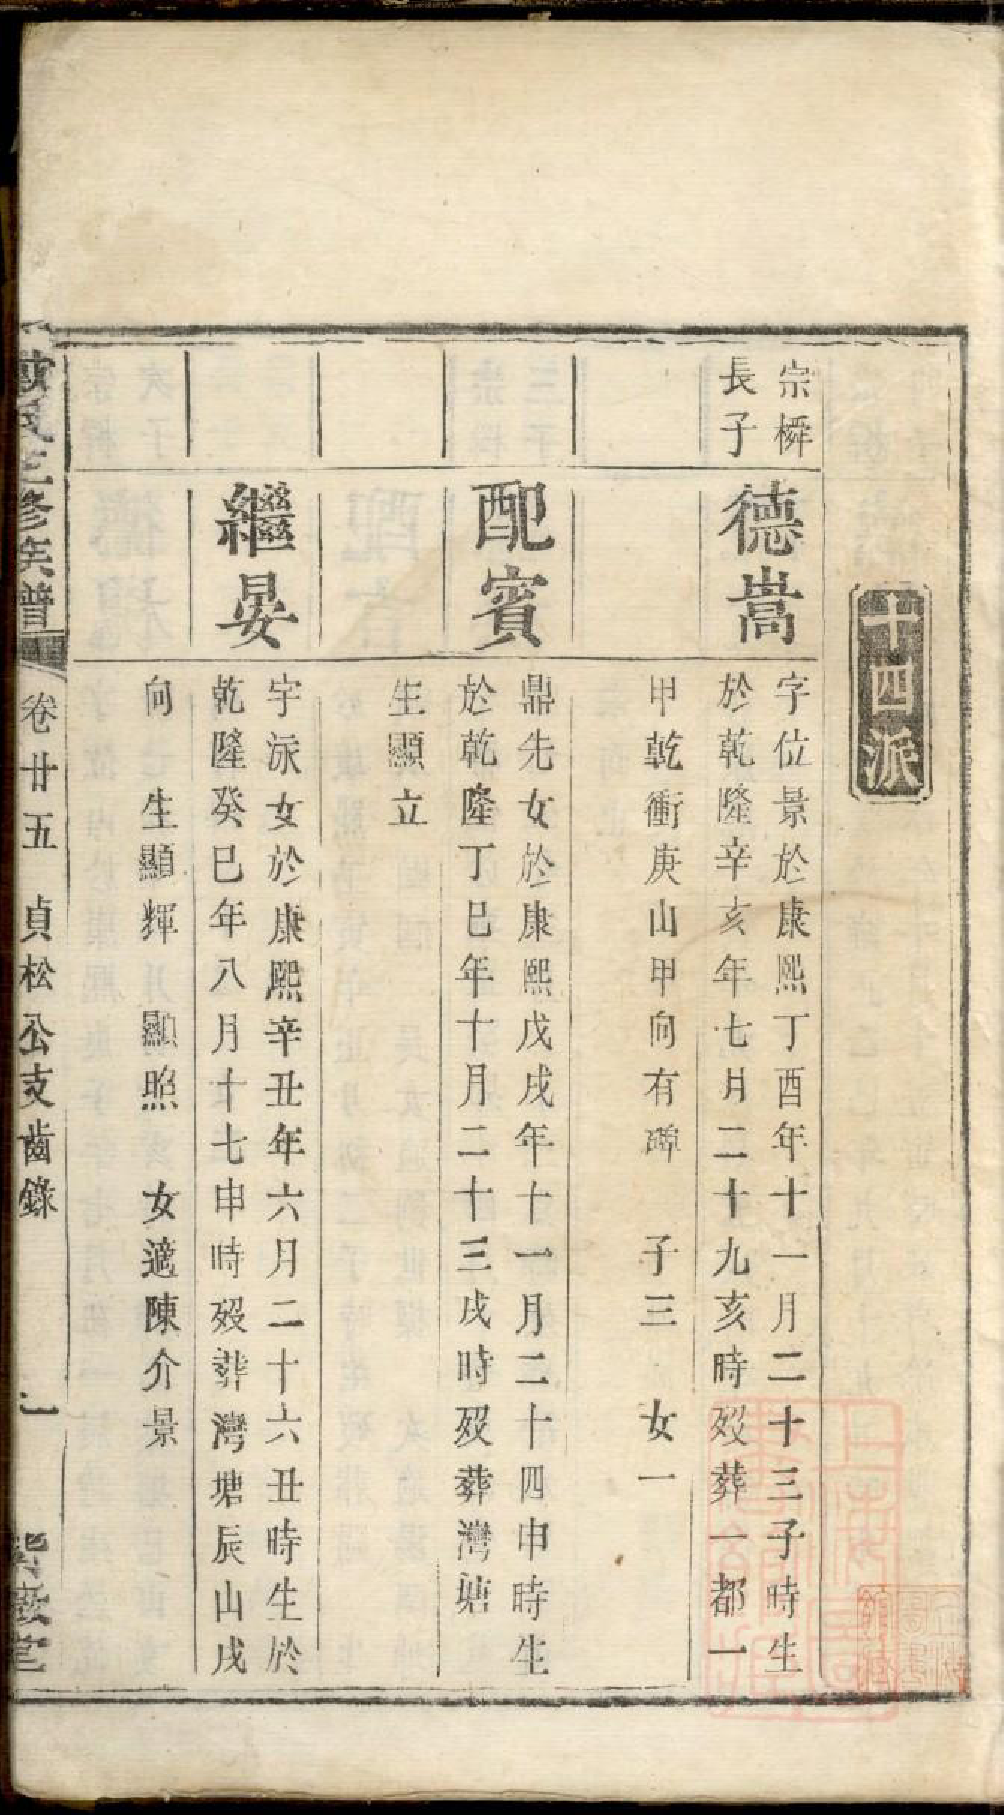 十四派
宗橓
長子
德嵩
字位景於康熙丁酉年十一月二十三子時生
於乾隆辛亥年七月二十九亥時歿葬一都一
甲乾衝庚山甲向有碑 子三 女一
配賓
鼎先女於康熙戊戌年十一月二十四申時生
於乾隆丁巳年十月二十三戌時歿葬灣塘
生顯立
繼晏
字泳女於康熙辛丑年六月二十六丑時生於
乾隆癸巳年八月十七申時歿葬灣塘辰山戌
向 生顯輝 顯照 女適陳介景
氏三修族譜
卷廿五 貞松公支齒錄
一